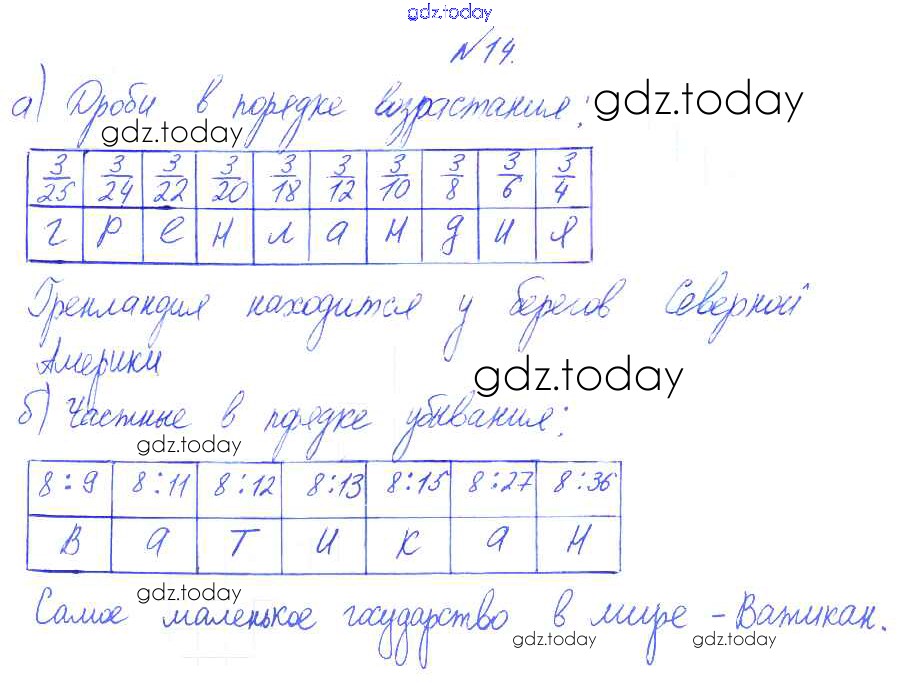 gdz.today
№14.
а) Дроби в порядке возрастания: gdz.today
gdz.today
3/25 3/24 3/22 3/20 3/18 3/12 3/10 3/8 3/6 3/4
г р е н л а н д и я
Гренландия находится у берегов Северной
Америки
gdz.today
б) Частные в порядке убывания:
gdz.today
8:9 8:11 8:12 8:13 8:15 8:27 8:36
В а т и к а н
gdz.today
Самое маленькое государство в мире - Ватикан.
gdz.today gdz.today